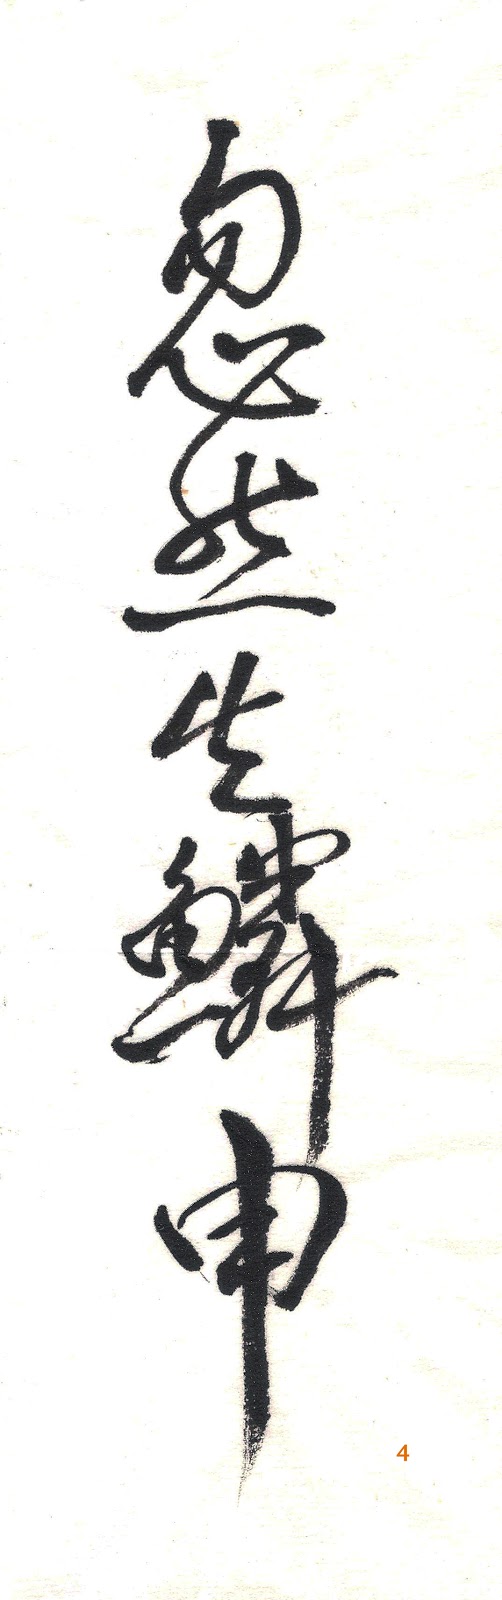 忽然生鱗甲
4